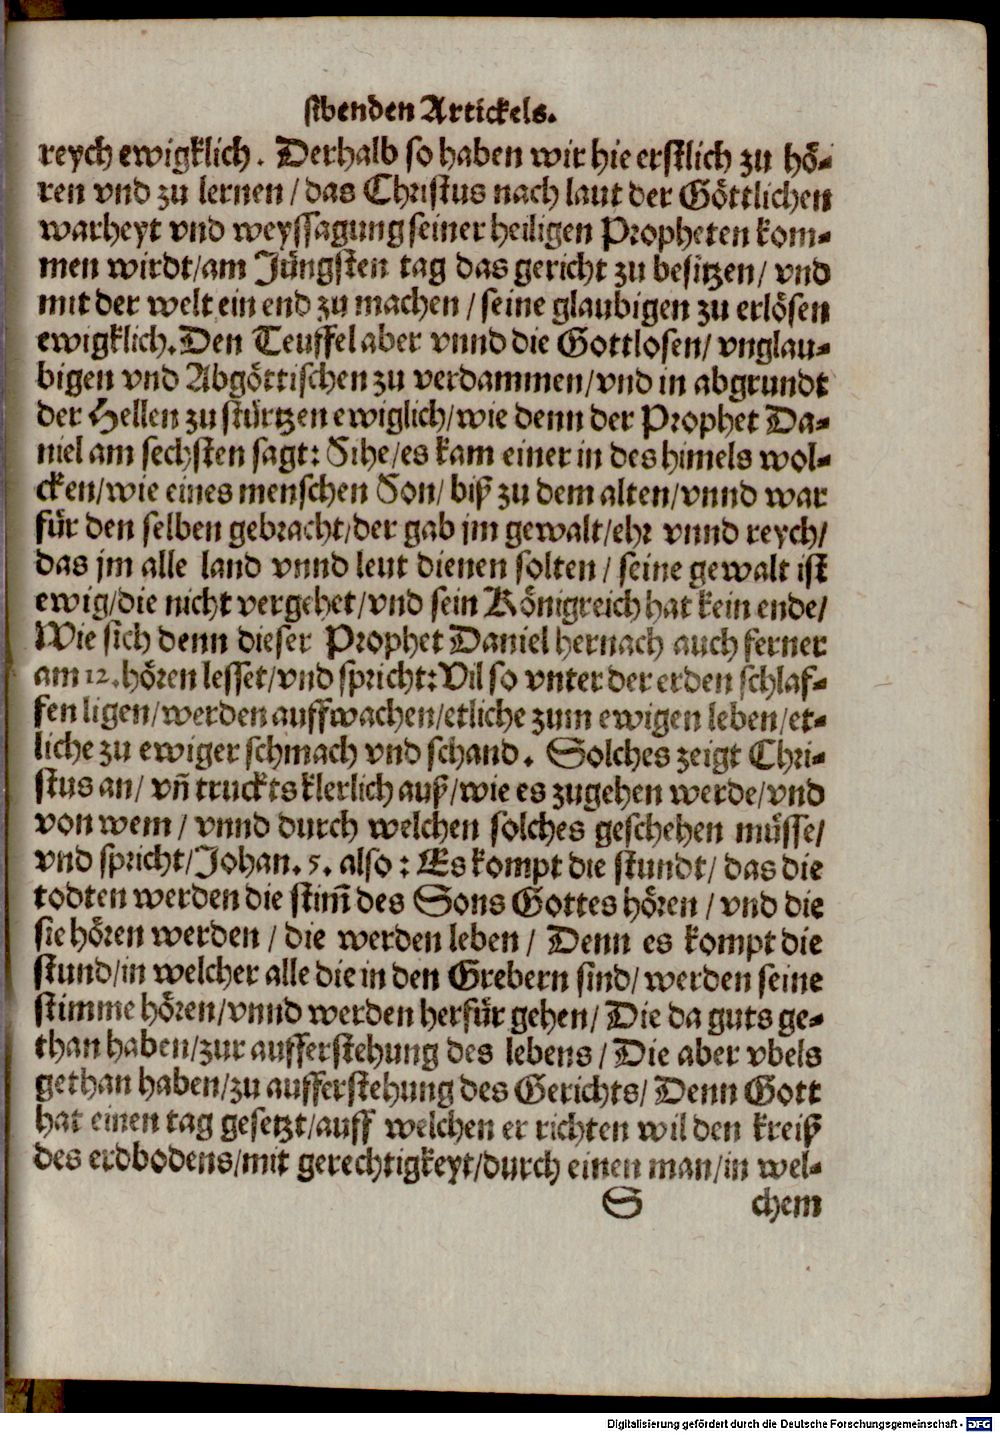 sibenden Artickels.
reych ewigklich. Derhalb so haben wir hie erstlich zu hö-
ren vnd zu lernen / das Christus nach laut der Göttlichen
warheyt vnd weyssagung seiner heiligen Propheten kom-
men wirdt/am Jüngsten tag das gericht zu besitzen/ vnd
mit der welt ein end zu machen / seine glaubigen zu erlösen
ewigklich. Den Teuffel aber vnnd die Gottlosen/ vnglau-
bigen vnd Abgöttischen zu verdammen/vnd in abgrundt
der Hellen zu stürtzen ewiglich/wie denn der Prophet Da-
niel am sechsten sagt: Sihe/es kam einer in des himels wol-
cken/wie eines menschen Son/ biß zu dem alten/vnnd war
für den selben gebracht/der gab jm gewalt/ehr vnnd reych/
das jm alle land vnnd leut dienen solten / seine gewalt ist
ewig/die nicht vergehet/vnd sein Königreich hat kein ende/
Wie sich denn dieser Prophet Daniel hernach auch ferner
am 12. hören lesset/vnd spricht: Vil so vnter der erden schlaf-
fen ligen/werden auffwachen/etliche zum ewigen leben/et-
liche zu ewiger schmach vnd schand. Solches zeigt Chri-
stus an/ vñ truckts klerlich auß/wie es zugehen werde/vnd
von wem / vnnd durch welchen solches geschehen müsse/
vnd spricht/Johan. 5. also: Es kompt die stundt/ das die
todten werden die stim̃ des Sons Gottes hören / vnd die
sie hören werden / die werden leben / Denn es kompt die
stund/in welcher alle die in den Grebern sind/ werden seine
stimme hören/vnnd werden herfür gehen/ Die da guts ge-
than haben/zur aufferstehung des lebens / Die aber vbels
gethan haben/zu aufferstehung des Gerichts/ Denn Gott
hat einen tag gesetzt/auff welchen er richten wil den kreiß
des erdbodens/mit gerechtigkeyt/durch einen man/in wel-
S chem
Digitalisierung gefördert durch die Deutsche Forschungsgemeinschaft - DFG